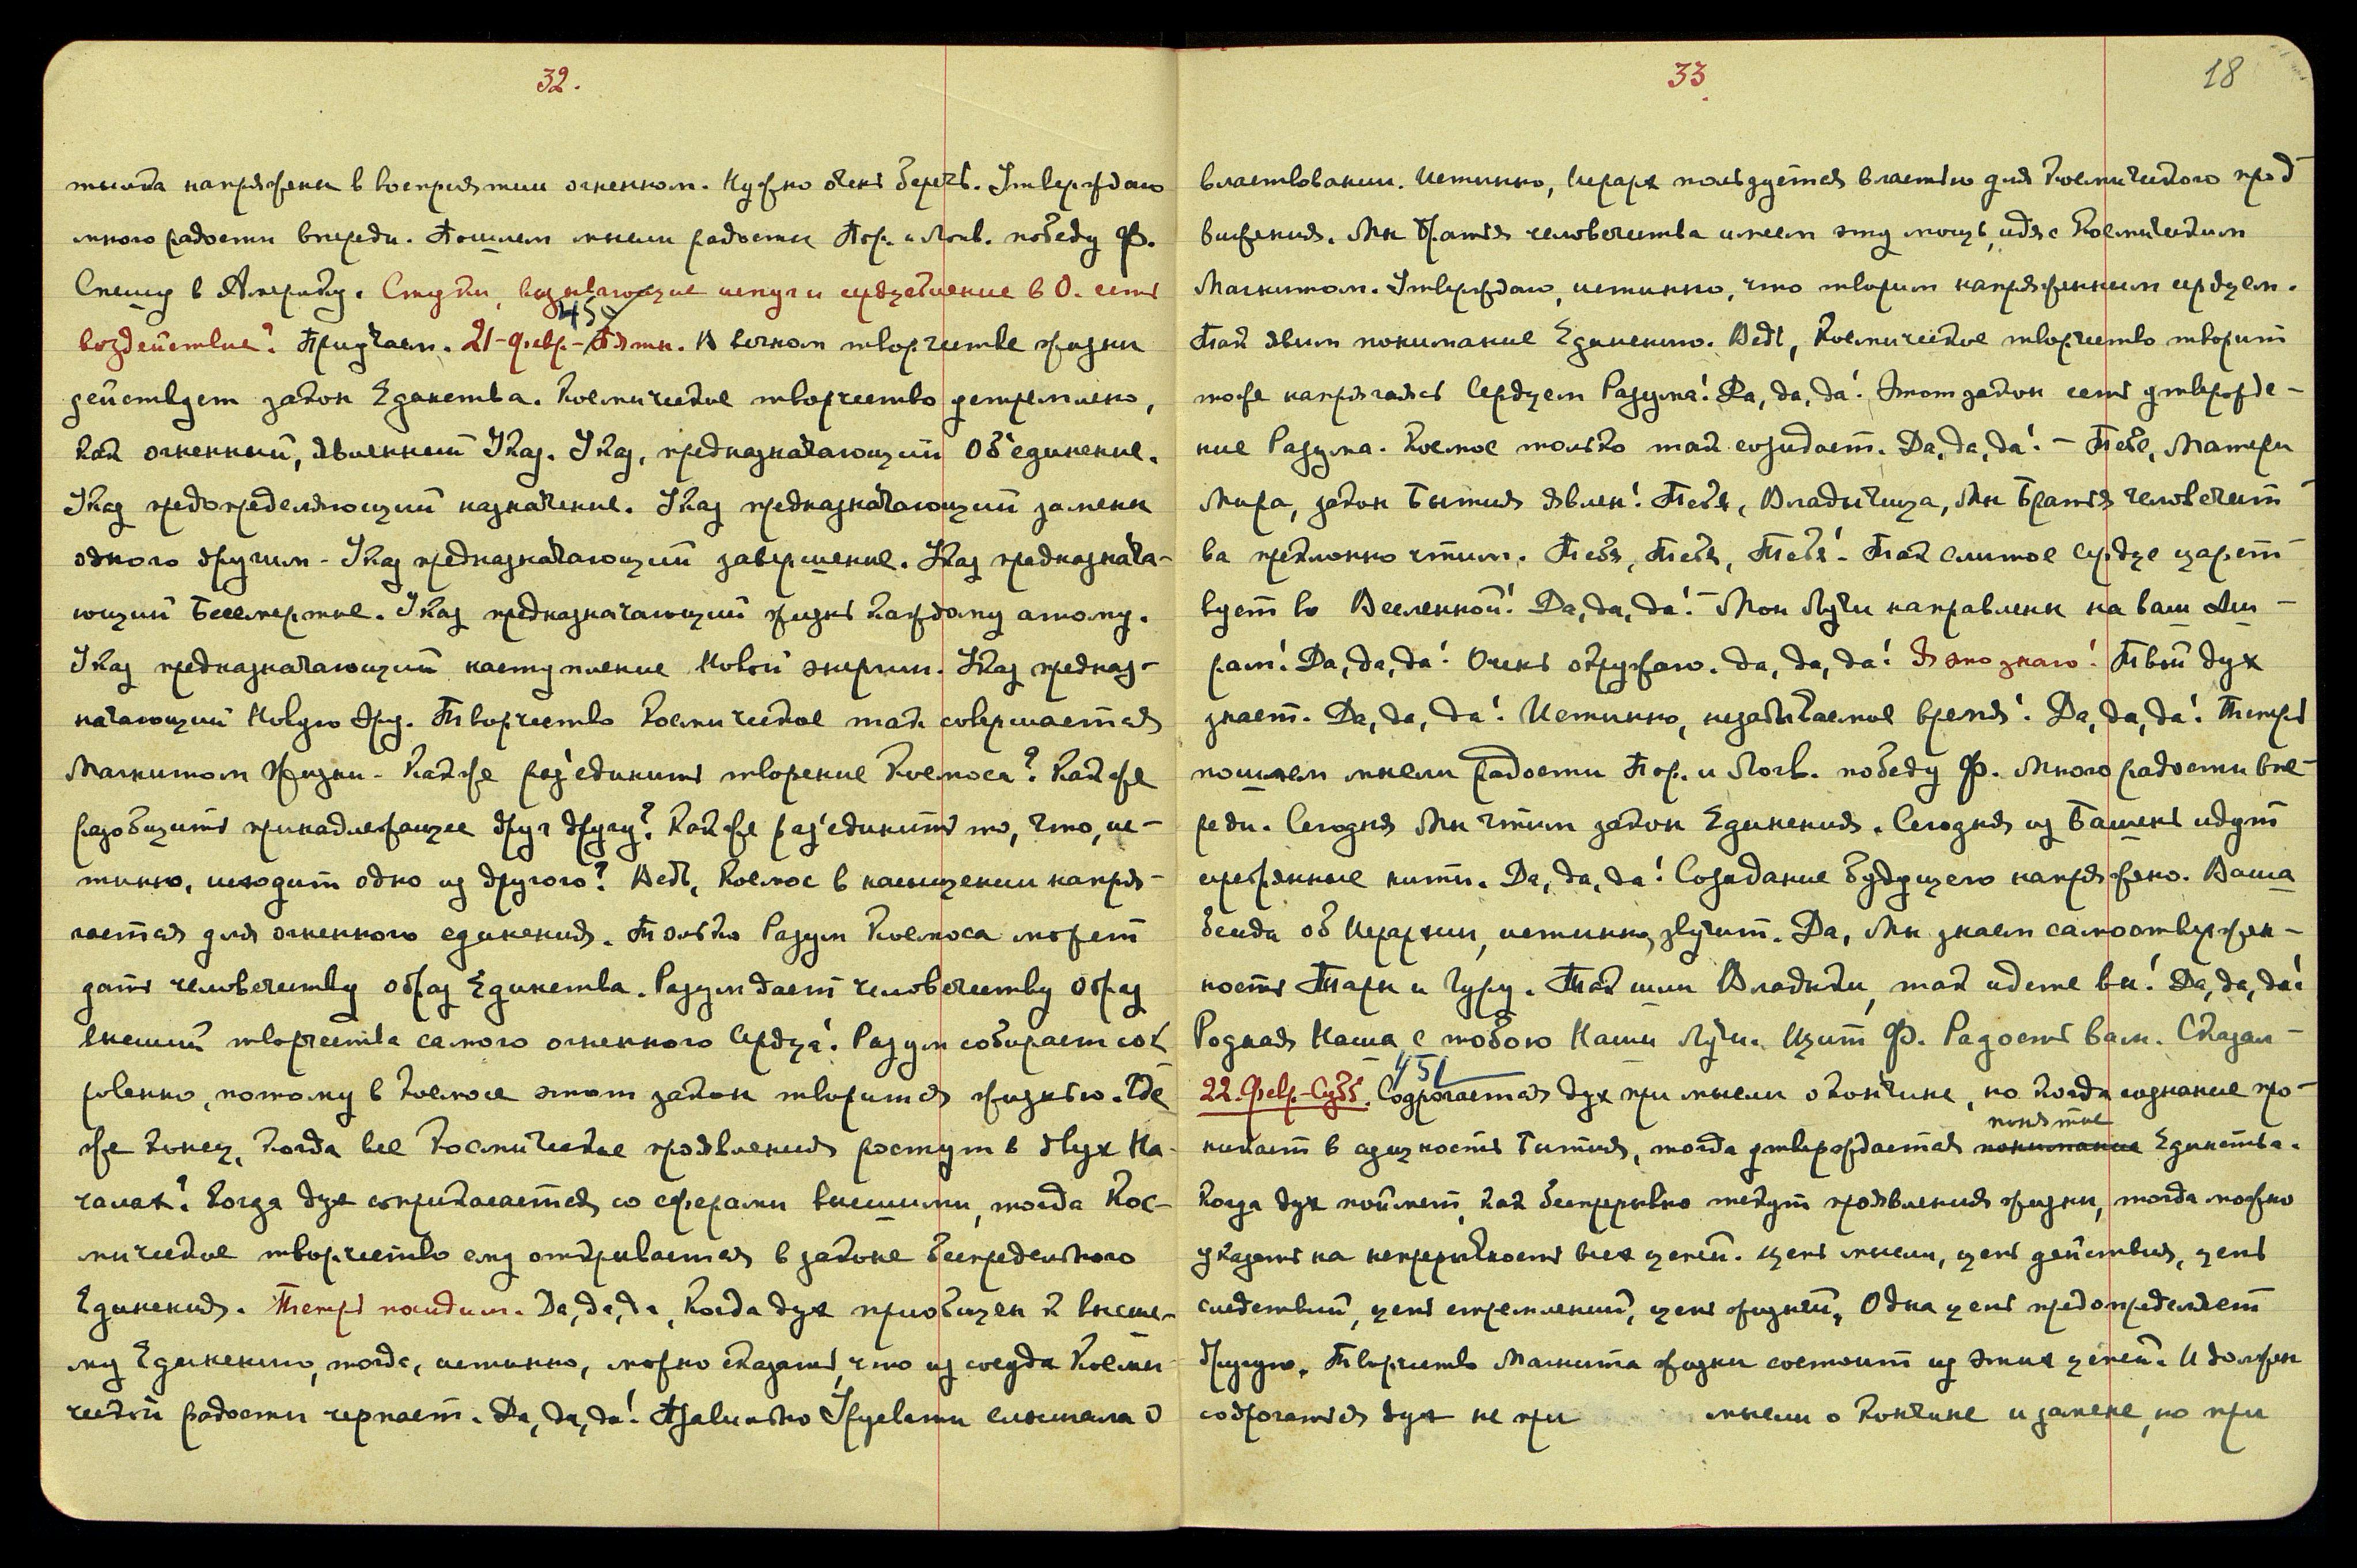 32.
тылка напряжены в восприятии огненном. Нужно очень беречь. Утверждаю
много радости впереди. Пошлем мысли радости Пор. и Логв. победу Ф.
Спешу в Америку. Стуки, вызывающие испуг и сердцебиение в О. есть
450
воздействие? Приучаем. 21-февр.-Пятн. В вечном творчестве жизни
действует закон Единства. Космическое творчество устремлено,
как огненный, явленный Указ. Указ, предназначающий Об'единение.
Указ предопределяющий назначение. Указ предназначающий замены
одного другим - Указ предназначающий завершение. Указ предназнача-
ющий Бессмертие. Указ предназначающий жизнь каждому атому.
Указ предназначающий наступление Новой энергии. Указ предназ-
начающий Новую Эру. Творчество Космическое так совершается
Магнитом Жизни - Как же раз'единить творение Космоса? Как же
разобщить принадлежащее друг другу? Как же раз'единить то, что, ис-
тинно, исходит одно из другого? Ведь, Космос в насыщении напря-
гается для огненного единения. Только Разум Космоса может
дать человечеству образ Единства. Разум дает человечеству Образ
высший творчества самого огненного Сердца! Разум собирает сок
ровенно, потому в Космосе этот закон творится жизнью. Где
же конец, когда все Космические проявления растут в двух На-
чалах? Когда дух соприкасается со сферами высшими, тогда Кос-
мическое творчество ему открывается в законе беспредельного
Единения. Теперь поидим. Да, да, да, когда дух приобщен к высше-
му Единению, тогда, истинно, можно сказать, что из сосуда Косми-
ческой радости черпает. Да, да, да! Правильно Урусвати слышала о
33
18
властвовании. Истинно, Иерарх пользуется властью для Космического прод
вижения. Мы Братья человечества имеем эту мощь, идя с Космическим
Магнитом. Утверждаю, истинно, что творим напряженным сердцем.
Так явим понимание Единению. Ведь, Космическое творчество творит
тоже напрягаясь Сердцем Разума! Да, да, да! Этот закон есть утвержде-
ние Разума. Космос только так созидает. Да, да, да! - Тебе, Матери
Мира, закон Бытия явлен! Тебя, Владычица, Мы Братья Человечест
ва преклонно чтим. Тебя, Тебя, Тебя! Так слитое сердце царст
вует во Вселенной! Да, да, да! - Мои Лучи направлены на ваш Аш-
рам! Да, да, да! Очень окружаю. Да, да, да! Я это знаю! Твой дух
знает. Да, да, да! Истинно, незабываемое время! Да, да, да! Теперь
пошлем мысли радости Пор. и Логв. победу Ф. Много радости впе-
реди. Сегодня Мы чтим закон Единения. Сегодня из Башень идут
серебряные нити. Да, да, да! Созидание будущего напряжено. Ваша
беседа об Иерархии, истинно, звучит. Да, Мы знаем самоотвержен-
ность Тары и Гуру. Так шли Владыки, так идете вы! Да, да, да!
Родная Наша с тобою Наши Лучи. Щит Ф. Радость вам. Сказал -
451
22. Февр.-Субб. Содрогается дух при мысли о кончине, но когда сознание про-
понятие
никает в сущность Бытия, тогда утверждается понимание Единства.
Когда дух поймет, как беспрерывно текут проявления жизни, тогда можно
указать на непрерывность всех цепей. цепь мысли, цепь действия, цепь
следствий, цепь стремлений, цепь жизней, Одна цепь предопределяет
другую. Творчество Магнита жизни состоит из этих цепей. И должен
содрогаться дух не при мысли о кончине и замене, но при